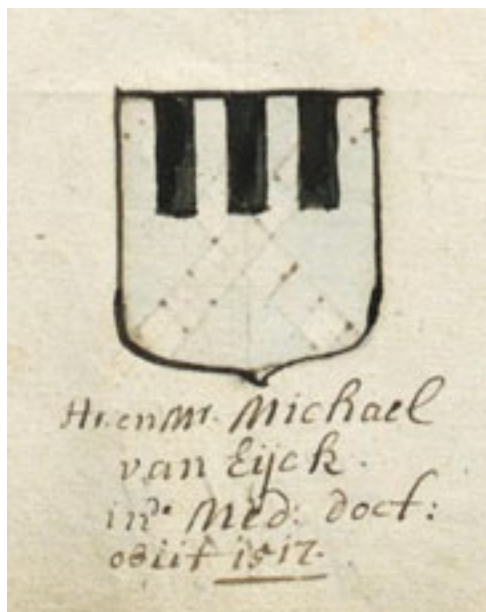 Hr. en Mr. Michael
van Eijck.
in Med: doct:
obiit 1517.